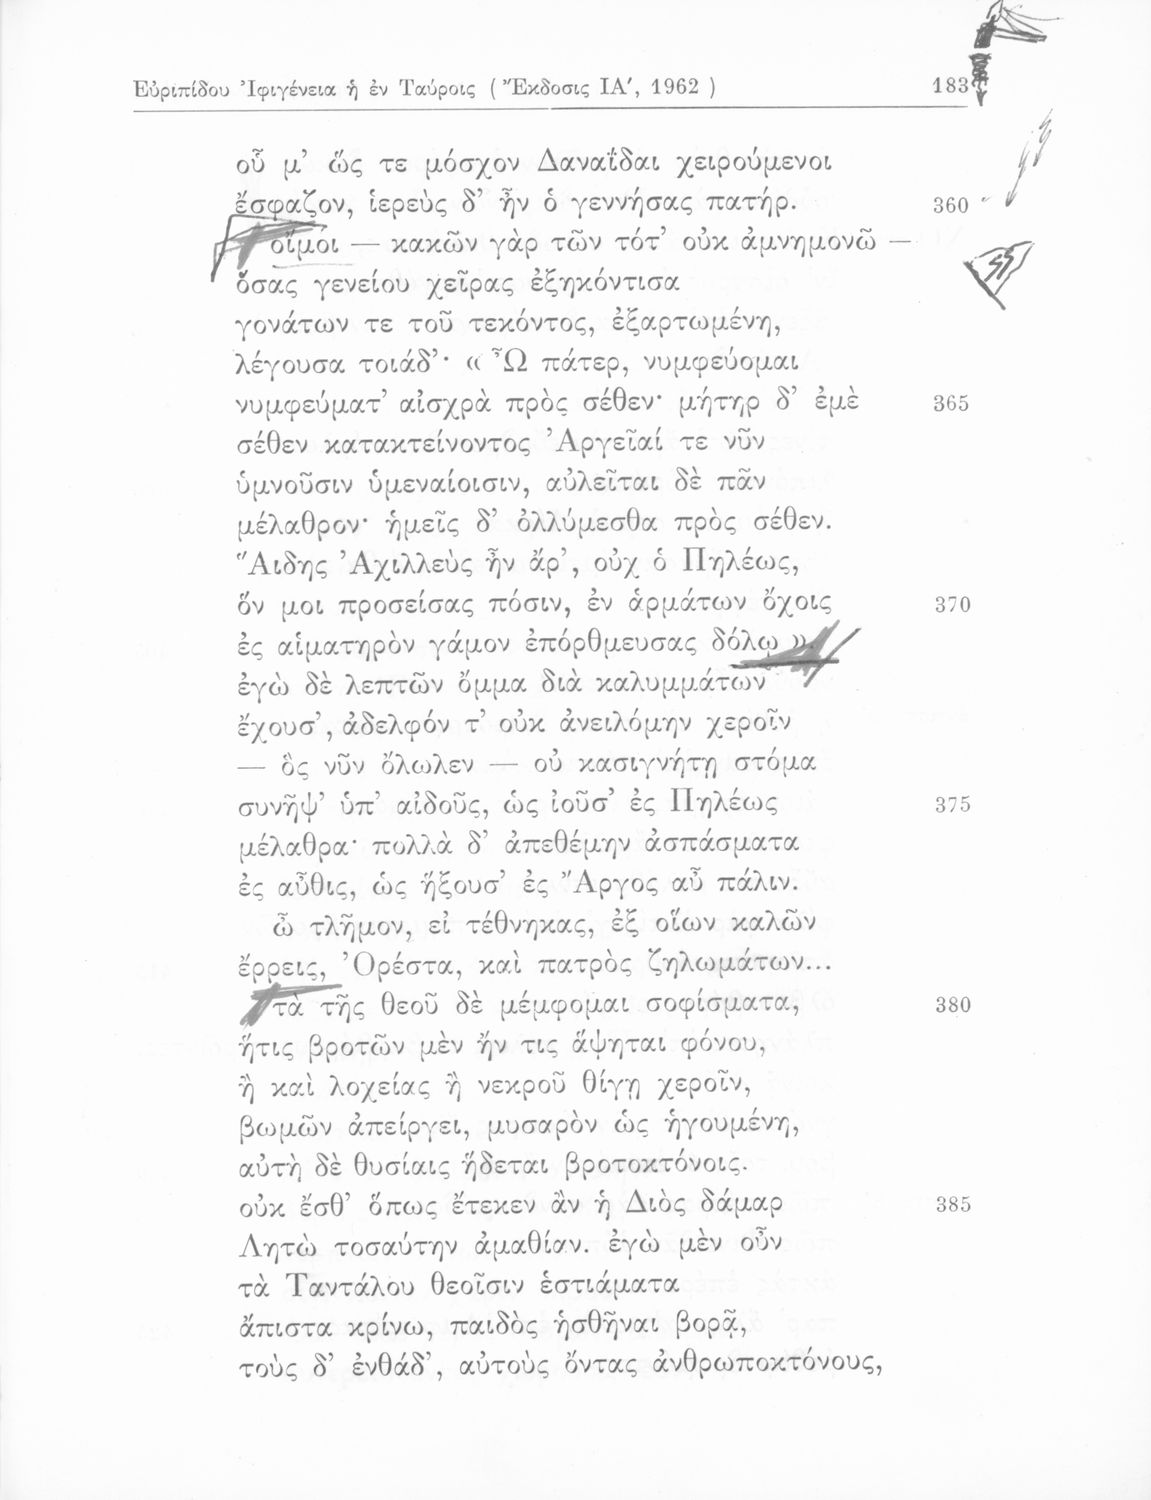 Εὐριπίδου Ἰφιγένεια ἡ ἐν Ταύροις ( Ἔκδοσις ΙΑ′, 1962 ) 183
οὗ μ’ ὥς τε μόσχον Δαναΐδαι χειρούμενοι
ἔσφαζον, ἱερεὺς δ’ ἦν ὁ γεννήσας πατήρ. 360
οἴμοι — κακῶν γὰρ τῶν τότ’ οὐκ ἀμνημονῶ —
ὅσας γενείου χεῖρας ἐξηκόντισα
γονάτων τε τοῦ τεκόντος, ἐξαρτωμένη,
λέγουσα τοιάδ’· « Ὦ πάτερ, νυμφεύομαι
νυμφεύματ’ αἰσχρὰ πρὸς σέθεν· μήτηρ δ’ ἐμὲ 365
σέθεν κατακτείνοντος Ἀργεῖαί τε νῦν
ὑμνοῦσιν ὑμεναίοισιν, αὐλεῖται δὲ πᾶν
μέλαθρον· ἡμεῖς δ’ ὀλλύμεσθα πρὸς σέθεν.
Ἅιδης Ἀχιλλεὺς ἦν ἄρ’, οὐχ ὁ Πηλέως,
ὅν μοι προσείσας πόσιν, ἐν ἁρμάτων ὄχοις 370
ἐς αἱματηρὸν γάμον ἐπόρθμευσας δόλῳ ».
ἐγὼ δὲ λεπτῶν ὄμμα διὰ καλυμμάτων
ἔχουσ’, ἀδελφόν τ’ οὐκ ἀνειλόμην χεροῖν
— ὃς νῦν ὄλωλεν — οὐ κασιγνήτῃ στόμα
συνῆψ’ ὑπ’ αἰδοῦς, ὡς ἰοῦσ’ ἐς Πηλέως 375
μέλαθρα· πολλὰ δ’ ἀπεθέμην ἀσπάσματα
ἐς αὖθις, ὡς ἥξουσ’ ἐς Ἄργος αὖ πάλιν.
ὦ τλῆμον, εἰ τέθνηκας, ἐξ οἵων καλῶν
ἔρρεις, Ὀρέστα, καὶ πατρὸς ζηλωμάτων...
τὰ τῆς θεοῦ δὲ μέμφομαι σοφίσματα, 380
ἥτις βροτῶν μὲν ἤν τις ἅψηται φόνου,
ἢ καὶ λοχείας ἢ νεκροῦ θίγῃ χεροῖν,
βωμῶν ἀπείργει, μυσαρὸν ὡς ἡγουμένη,
αὐτὴ δὲ θυσίαις ἥδεται βροτοκτόνοις.
οὐκ ἔσθ’ ὅπως ἔτεκεν ἂν ἡ Διὸς δάμαρ 385
Λητὼ τοσαύτην ἀμαθίαν. ἐγὼ μὲν οὖν
τὰ Ταντάλου θεοῖσιν ἑστιάματα
ἄπιστα κρίνω, παιδὸς ἡσθῆναι βορᾷ,
τοὺς δ’ ἐνθάδ’, αὐτοὺς ὄντας ἀνθρωποκτόνους,